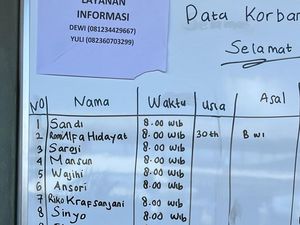 LAYANAN
INFORMASI
DEWI (081234429667)
YULI (082360703299)
Data Korban
Selamat
NO Nama Waktu Usia Asal
1 Sandi 8.00 WIB
2 Romi Alfa Hidayat 8.00 WIB 30 th B wi
3 Saroji 8.00 WIB
4 Mansun 8.00 WIB
5 Wajihi 8.00 WIB
6 Ansori 8.00 WIB
7 Riko Krapsanjani 8.00 WIB
8 Sinyo 8.00 WIB